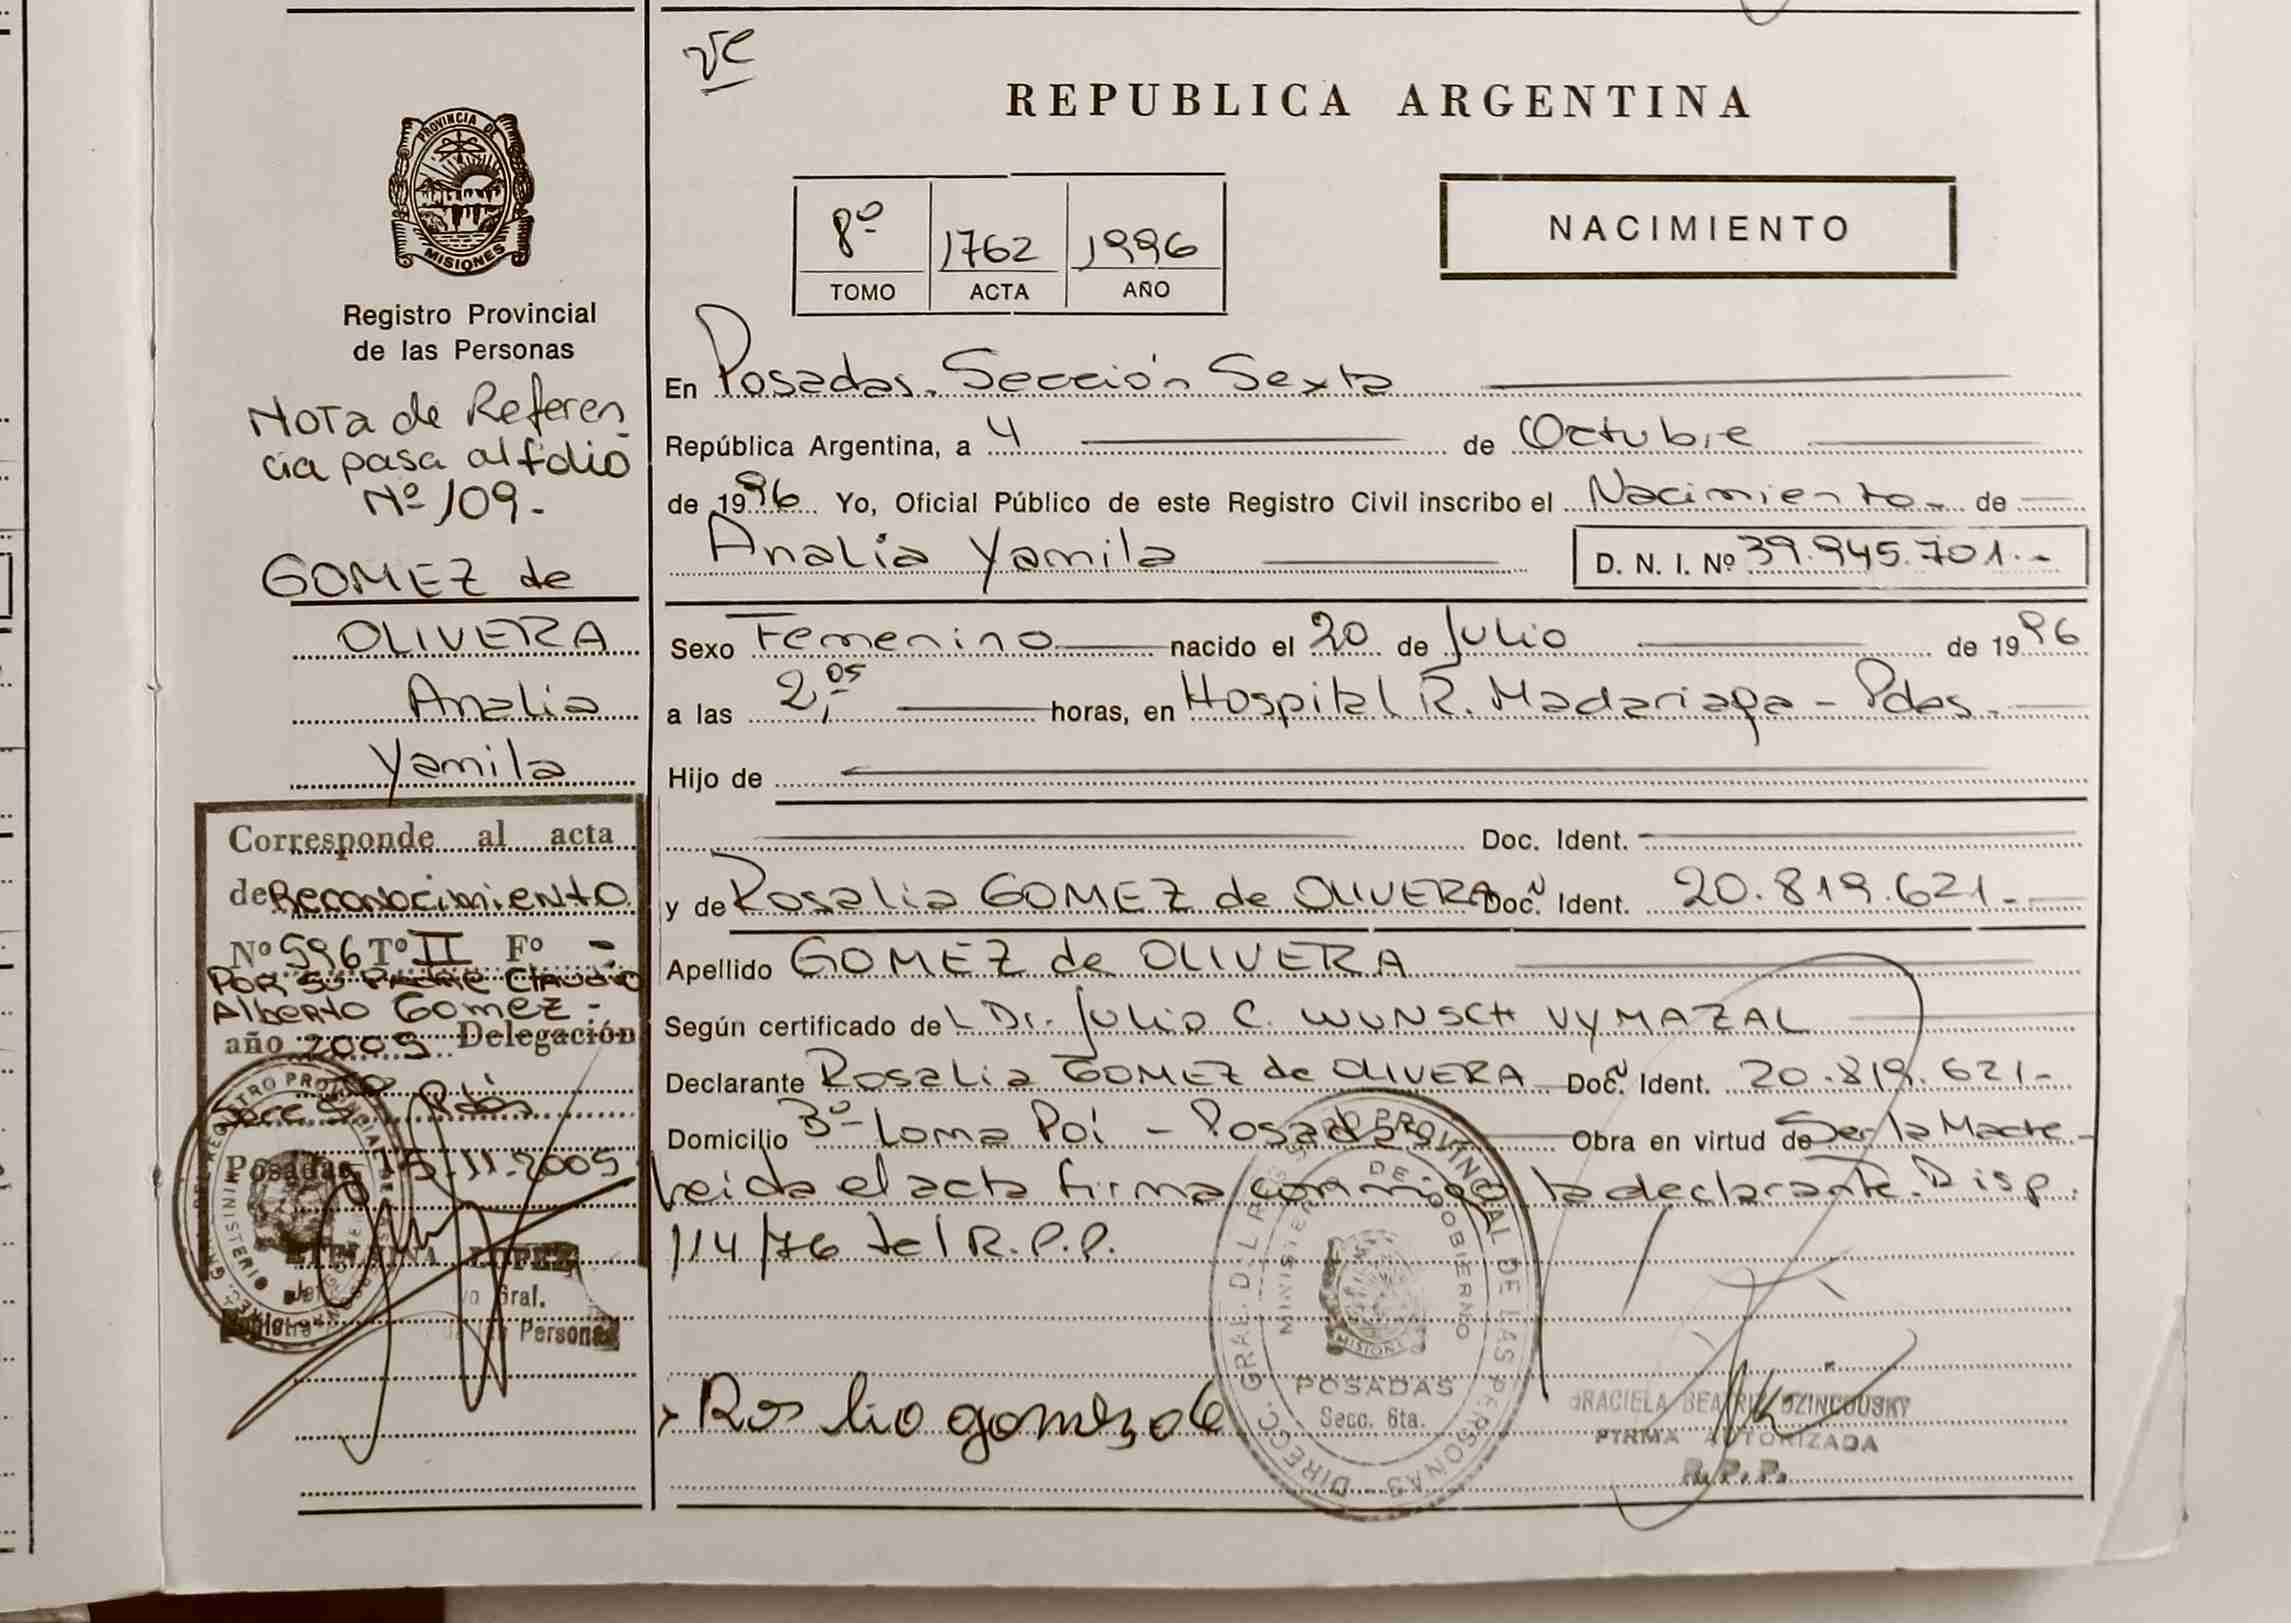 PROVINCIA DE
MISIONES
Registro Provincial
de las Personas
Nota de Referen
cia pasa al folio
Nº 109.-
GOMEZ de
OLIVERA
Analia
Yamila
Corresponde al acta
de Reconocimiento
Nº 596 Tº II Fº -
POR SU PADRE Claudio
Alberto Gomez -
año 2005 Delegación
Secc 6ta Pdas
Posadas 15-11-2005
LOPEZ
Gral.
Registro Personas
REPUBLICA ARGENTINA
8º 1762 1996
TOMO ACTA AÑO
NACIMIENTO
En Posadas. Sección Sexta
República Argentina, a 4 de Octubre
de 1996 Yo, Oficial Público de este Registro Civil inscribo el Nacimiento - de
Analia Yamila D. N. I. Nº 39.945.701.-
Sexo Femenino nacido el 20 de Julio de 1996
a las 2,05 horas, en Hospital R. Madariaga - Pdas.
Hijo de
Doc. Ident.
y de Rosalia GOMEZ de OLIVERA Doc. Ñ Ident. 20.819.621.-
Apellido GOMEZ de OLIVERA
Según certificado del Dr. Julio C. WUNSCH VYMAZAL
Declarante Rosalia GOMEZ de OLIVERA Doc. Ñ Ident. 20.819.621-
Domicilio Bº Loma Poi - Posadas Obra en virtud de Ser la Madre -
Leida el acta firma conmigo la declarante. Disp.
114/76 del R.P.P.
DIRECC. GRAL. DEL REGISTRO PROVINCIAL DE LAS PERSONAS
MINISTERIO DE GOBIERNO
MISIONES
POSADAS
Secc. 6ta.
GRACIELA BEATRIZ
FIRMA AUTORIZADA
R.P.P.